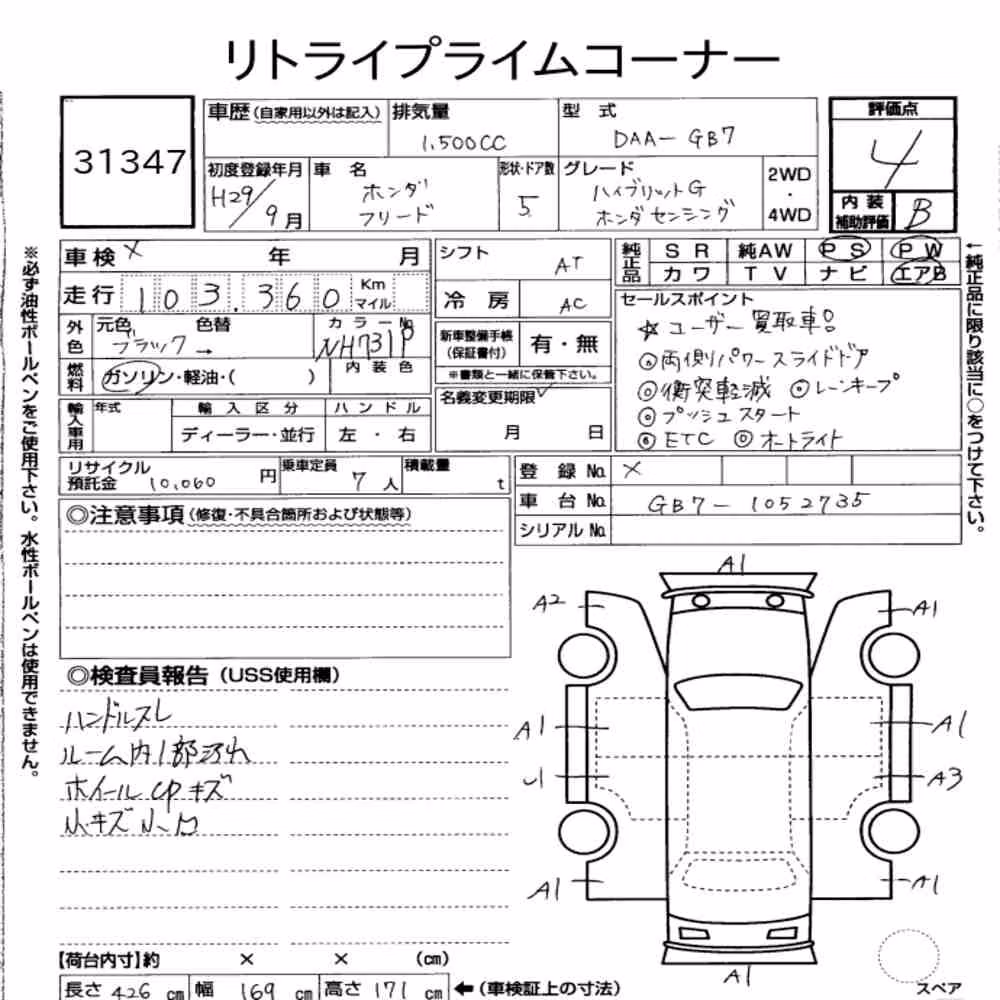 リトライプライムコーナー
31347
車歴(自家用以外は記入) 排気量 1,500CC
型式 DAA-GB7
評価点 4
初度登録年月 H29/9月
車名 ホンダ フリード
形状・ドア数 5
グレード ハイブリットG ホンダセンシング
2WD・4WD
内装補助評価 B
車検 × 年 月
シフト AT
純正品 SR 純AW PS PW
カワ TV ナビ エアB
走行 103,360 Km マイル
冷房 AC
外色 元色 ブラック 色替 →
カラーNo. NH731P
新車整備手帳(保証書付) 有・無
※書類と一緒に保管下さい。
燃料 ガソリン・軽油・( )
内装色
名義変更期限 月 日
セールスポイント
☆ユーザー買取車!
◎両側パワースライドドア
◎衝突軽減 ◎レーンキープ
◎プッシュスタート
◎ETC ◎オートライト
輸入車用 年式 輸入区分 ディーラー・並行 ハンドル 左・右
リサイクル預託金 10,060円
乗車定員 7人
積載量 t
登録No. ×
車台No. GB7-1052735
シリアルNo.
◎注意事項(修復・不具合箇所および状態等)
◎検査員報告(USS使用欄)
ハンドルスレ
ルーム内1部汚れ
ホイールCPキズ
小キズ小凹
A1
A2
A1
A1
A1
A3
A1
A1
A1
スペア
【荷台内寸】約 × × (cm)
長さ 426 cm 幅 169 cm 高さ 171 cm ←(車検証上の寸法)
※必ず油性ボールペンをご使用下さい。水性ボールペンは使用できません。
←純正品に限り該当に○をつけて下さい。